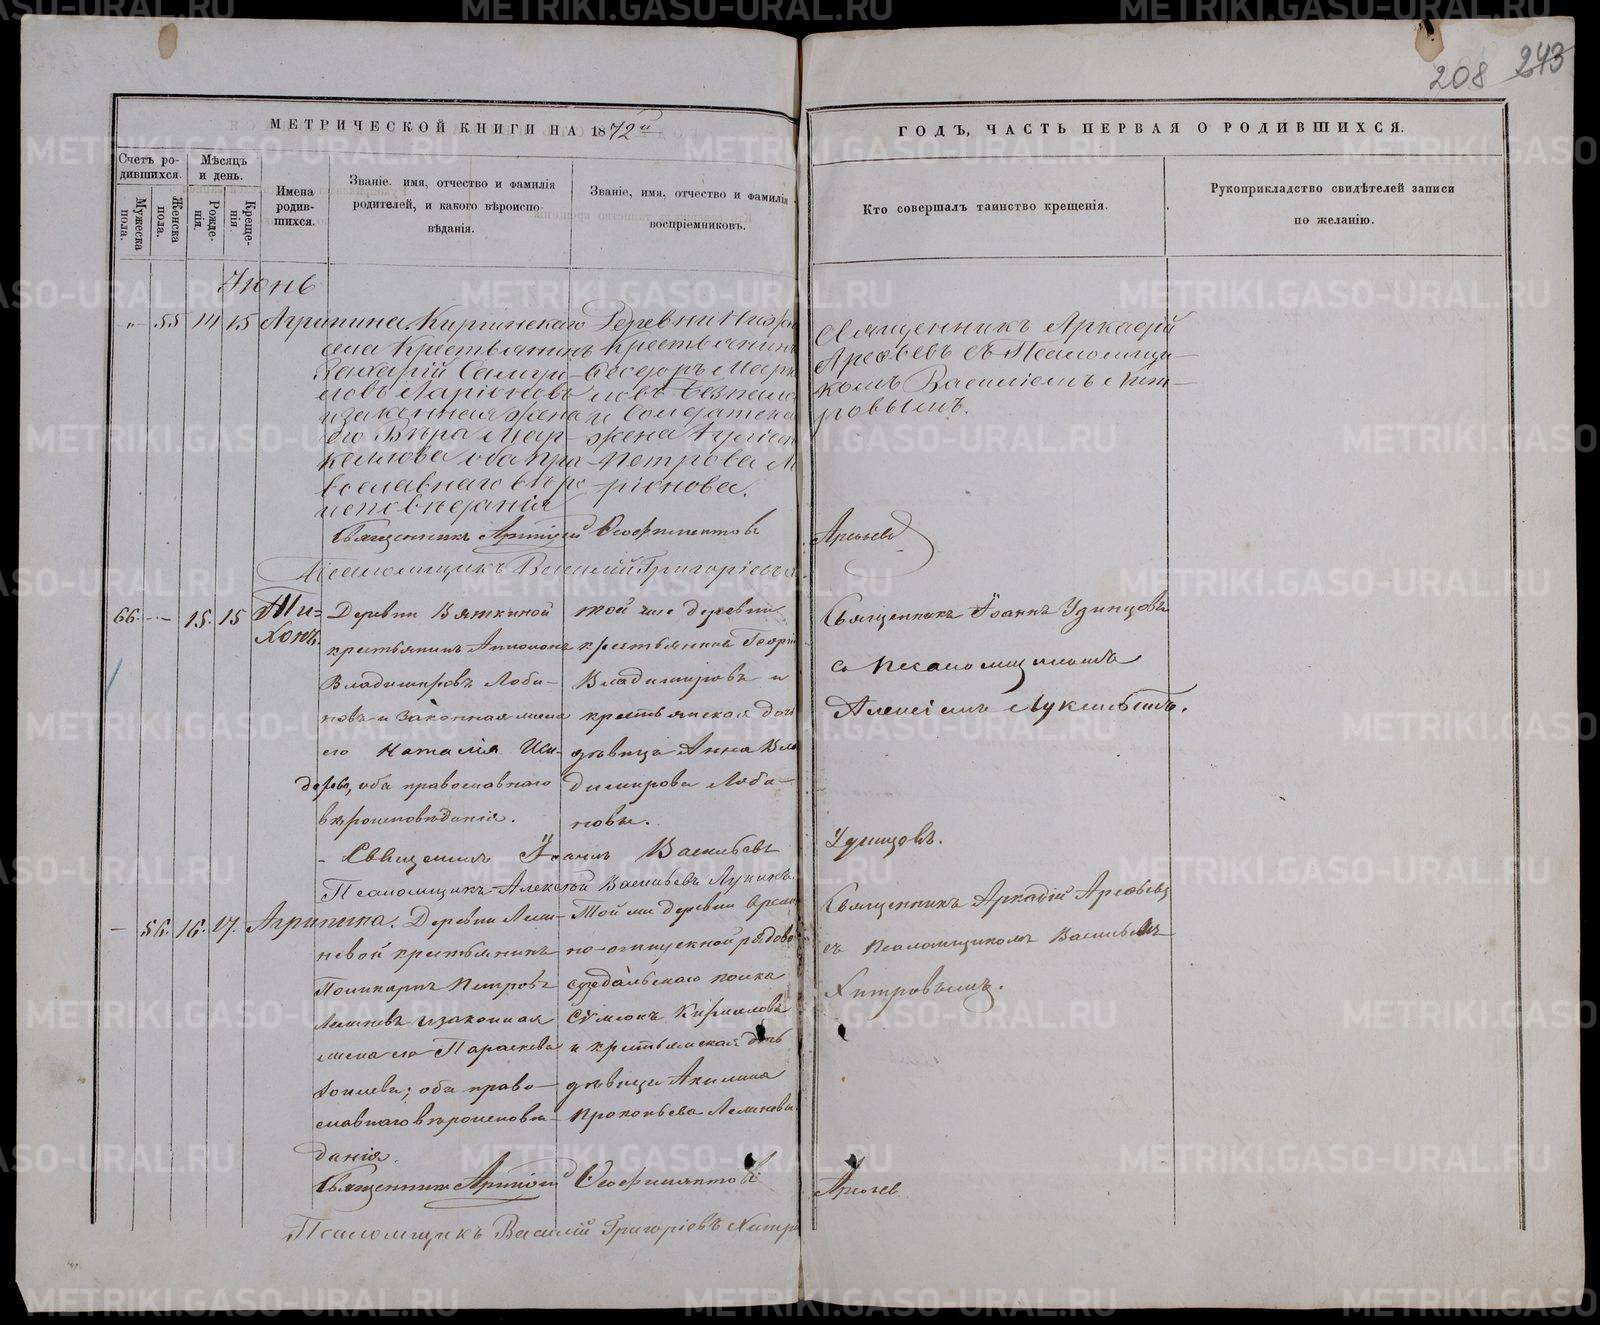 208 243
МЕТРИЧЕСКОЙ КНИГИ НА 1872й
ГОДЪ, ЧАСТЬ ПЕРВАЯ О РОДИВШИХСЯ.
Счетъ ро-
дившихся.
Мужеска
пола.
Женска
пола.
Мѣсяцъ
и день.
Рожде-
нія.
Креще-
нія.
Имена
родив-
шихся.
Званіе, имя, отчество и фамилія
родителей, и какого вѣроиспо-
вѣданія.
Званіе, имя, отчество и фамилія
воспріемниковъ.
Кто совершалъ таинство крещенія.
Рукоприкладство свидѣтелей записи
по желанію.
Іюнь
55 14 15 Агрипина
Киргинскаго
села Крестьянинъ
Захарій Самуи-
ловъ Ларіоновъ
и законная жена
его Вѣра Мар-
келлова оба пра-
вославнаго вѣро
исповѣданія
Деревни
Крестьянинъ
Ѳеодоръ
и Солдатска
жена
Петрова
ріонова.
Священникъ Аркадій
Арефьевъ съ Псаломщи-
комъ Василіемъ Хит-
ровымъ.
Священникъ Аркадій Феофилактовъ
Арефьевъ
Псаломщикъ Василій Григоріевъ
66. 15. 15 Ти-
хонъ.
Деревни Вяткиной
крестьянинъ
Владимировъ Лоба-
новъ и законная жена
его Наталія Иси-
дорова, оба православнаго
вѣроисповѣданія.
той же деревни
крестьянинъ Георгій
Владимировъ и
крестьянская дочь
дѣвица Анна Вла
димирова Лоба-
новы.
Священникъ Іоаннъ Удинцовъ
съ псаломщикомъ
Алексіемъ Лукинымъ.
Священникъ Іоаннъ Васильевъ
Удинцовъ.
Псаломщикъ Алексѣй Васильевъ Лукинъ.
56. 16. 17. Агрипина.
Деревни Леш-
невой крестьянинъ
Поликарпъ Петровъ
и законная
жена его Параскева
оба право-
славнаго вѣроисповѣ-
данія.
Той же деревни време
но-отпускной рядово
суздальскаго полка
Симеонъ Кириловъ
и крестьянская дочь
дѣвица Акилина
Прокопьева
Священникъ Аркадій Арефьевъ
съ Псаломщикомъ Васильемъ
Хитровымъ.
Священникъ Аркадій Феофилактовъ
Арефьев
Псаломщикъ Василій Григоріевъ Хитро
METRIKI.GASO-URAL.RU